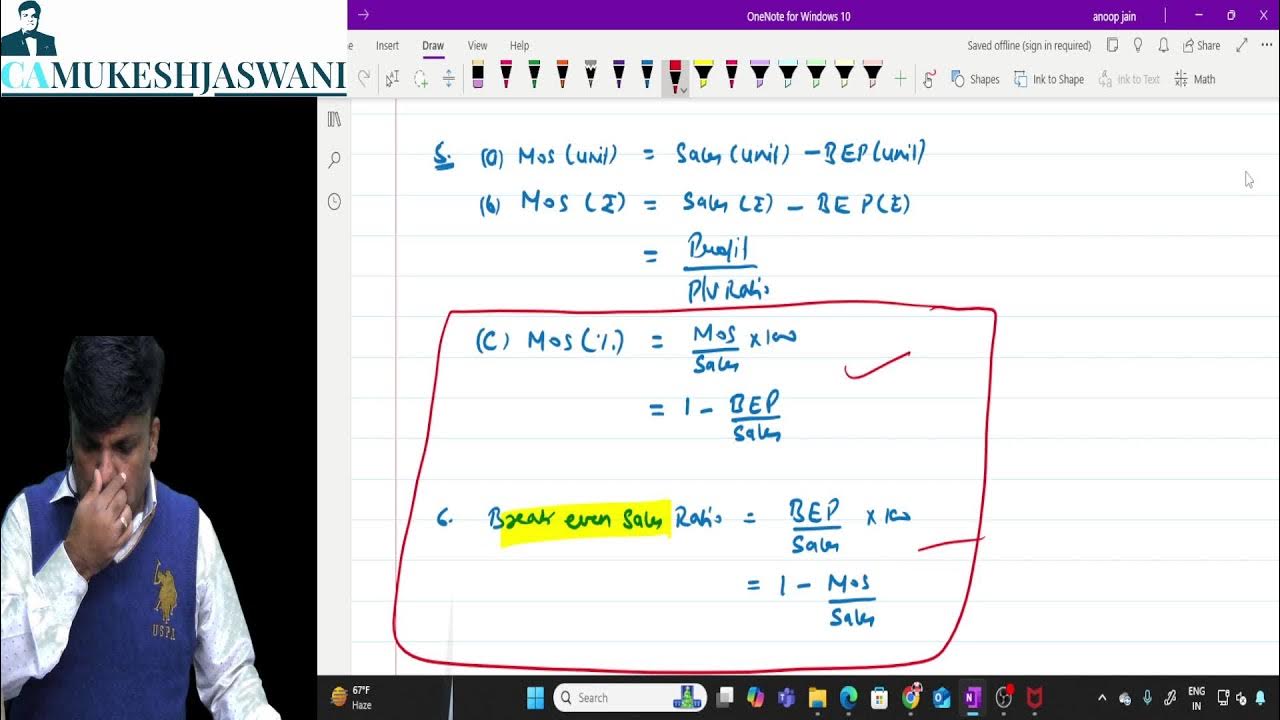 CAMUKESHJASWANI
OneNote for Windows 10
anoop jain
Insert Draw View Help
Saved offline (sign in required)
Share
Shapes
Ink to Shape
Ink to Text
Math
5. (a) MOS (unit) = Sales (unit) - BEP (unit)
(b) MOS (₹) = Sales (₹) - BEP (₹)
= Profit
P/V Ratio
(C) MOS (%) = MOS × 100
Sales
= 1 - BEP
Sales
6. Break even Sales Ratio = BEP × 100
Sales
= 1 - MOS
Sales
U.S.P.A.
67°F
Haze
Search
ENG
IN